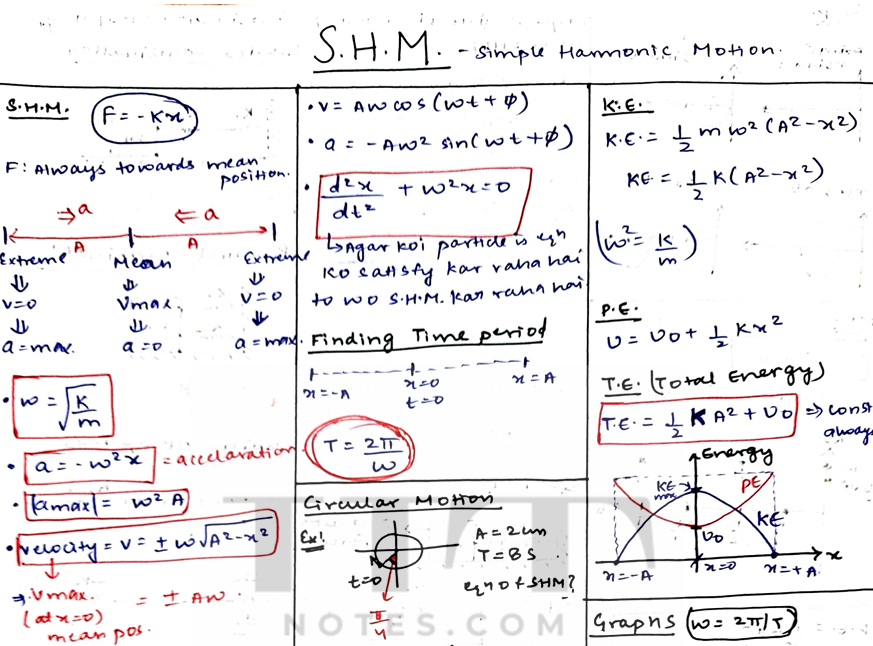 S.H.M. - Simple Harmonic Motion.
S.H.M. F = -Kx
F: Always towards mean
position.
⇒a ⇐ a
A A
Extreme Mean Extreme
⇓ ⇓ ⇓
v=0 Vmax. v=0
⇓ ⇓ ⇓
a=max. a=0 a=max.
• w = √(K/m)
• a = -w²x = accelaration.
• |amax| = w²A
• velocity = v = ± w√(A²-x²)
⇒ Vmax. = ± Aw.
(at x=0)
mean pos.
• v = Aw cos(wt+φ)
• a = -Aw² sin(wt+φ)
• d²x/dt² + w²x=0
↳Agar koi particle is eqn
ko satisfy kar raha hai
to wo S.H.M. kar raha hai
Finding Time period
x=-A x=0 x=A
t=0
T = 2π/w
Circular Motion
Ex! A = 2cm
T = 8 S
t=0 eqn of SHM?
π/4
K.E.
K.E. = 1/2 m w² (A²-x²)
KE = 1/2 K(A²-x²)
(w² = K/m)
P.E.
U = U0 + 1/2 Kx²
T.E. (Total Energy)
T.E. = 1/2 K A² + U0 ⇒ const
always
Energy
KE max PE
KE
U0
x
x=-A x=0 x=+A
Graphs (w = 2π/T)
TNT
NOTES.COM